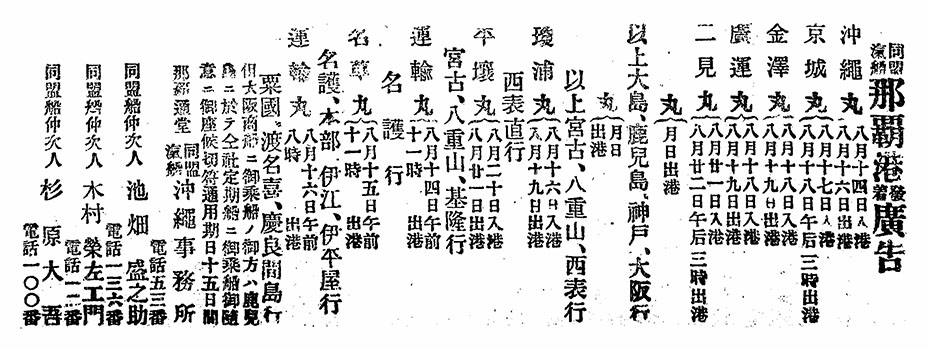 同盟汽船 那覇港発着廣告
沖繩丸 八月十四日入港 八月十六日出港
京城丸 八月十七日入港 八月十八日午后三時出港
金澤丸 八月十八日入港 八月十九日出港
廣運丸 八月十九日入港 八月廿日出港
二見丸 八月廿一日入港 八月廿二日午后三時出港
丸 月日出港
以上大島、鹿兒島、神戸、大阪行
丸 月日出港
以上宮古、八重山、西表行
瓊浦丸 八月十六日入港 八月十九日出港
西表直行
平壤丸 八月二十日入港 八月廿一日出港
宮古、八重山、基隆行
運輸丸 八月十四日午前十一時出港
名護行
名尊丸 八月十五日午前十一時出港
名護、本部、伊江、伊平屋行
運輸丸 八月十六日午前八時出港
粟國、渡名喜、慶良間島行
但大阪商船ニ御乘船ノ御方ハ鹿兒
島ニ於テ仝社定期船ニ御乘船御隨
意ニ御座候切符通用期日十五日間
那覇通堂 同盟汽船 沖繩事務所
電話五三番
同盟船仲次人 池畑盛之助
電話一三六番
同盟船仲次人 木村榮左エ門
電話一二番
同盟船仲次人 杉原大吾
電話一〇〇番